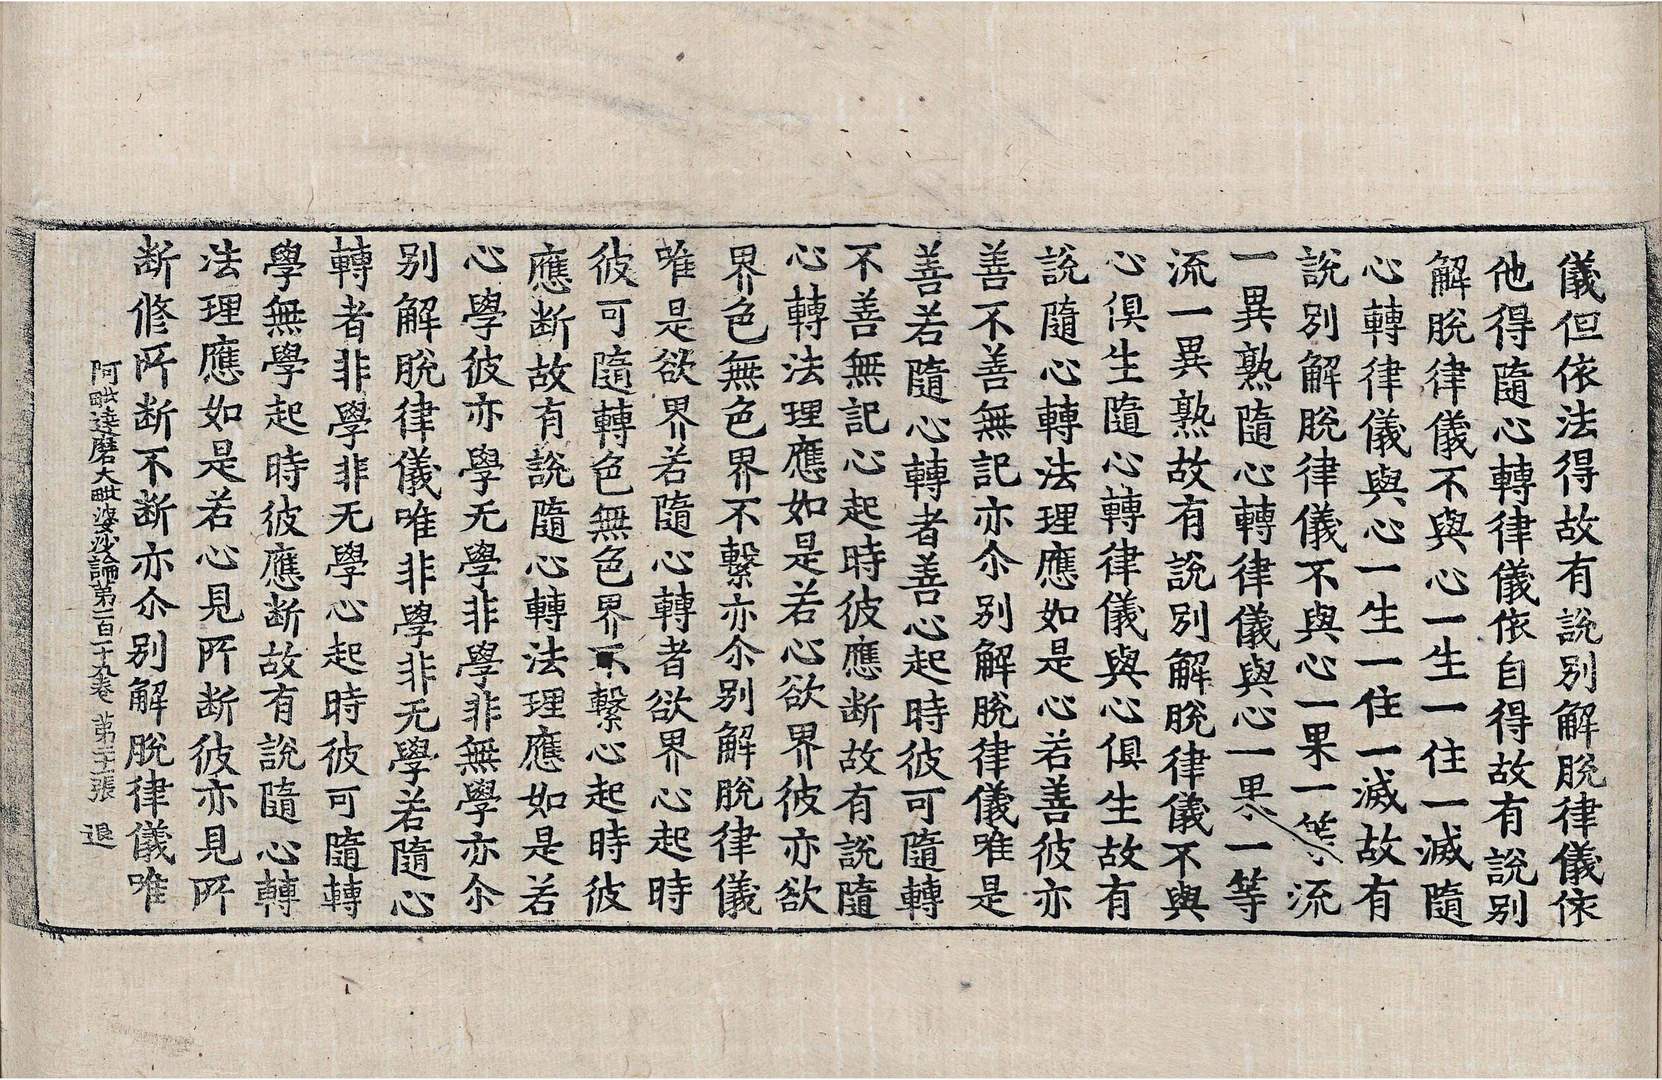 儀但依法得故有說別解脫律儀依
他得隨心轉律儀依自得故有說別
解脫律儀不與心一生一住一滅隨
心轉律儀與心一生一住一滅故有
說別解脫律儀不與心一果一等流
一異熟隨心轉律儀與心一果一等
流一異熟故有說別解脫律儀不與
心俱生隨心轉律儀與心俱生故有
說隨心轉法理應如是心若善彼亦
善不善無記亦尒別解脫律儀唯是
善若隨心轉者善心起時彼可隨轉
不善無記心起時彼應断故有說隨
心轉法理應如是若心欲界彼亦欲
界色無色界不繫亦尒別解脫律儀
唯是欲界若隨心轉者欲界心起時
彼可隨轉色無色界不繫心起時彼
應断故有說隨心轉法理應如是若
心學彼亦學无學非學非無學亦尒
別解脫律儀唯非學非无學若隨心
轉者非學非无學心起時彼可隨轉
學無學起時彼應断故有說隨心轉
法理應如是若心見所断彼亦見所
断修所断不断亦尒別解脫律儀唯
阿毗達磨大毗婆沙論第一百一十九卷 第張 退